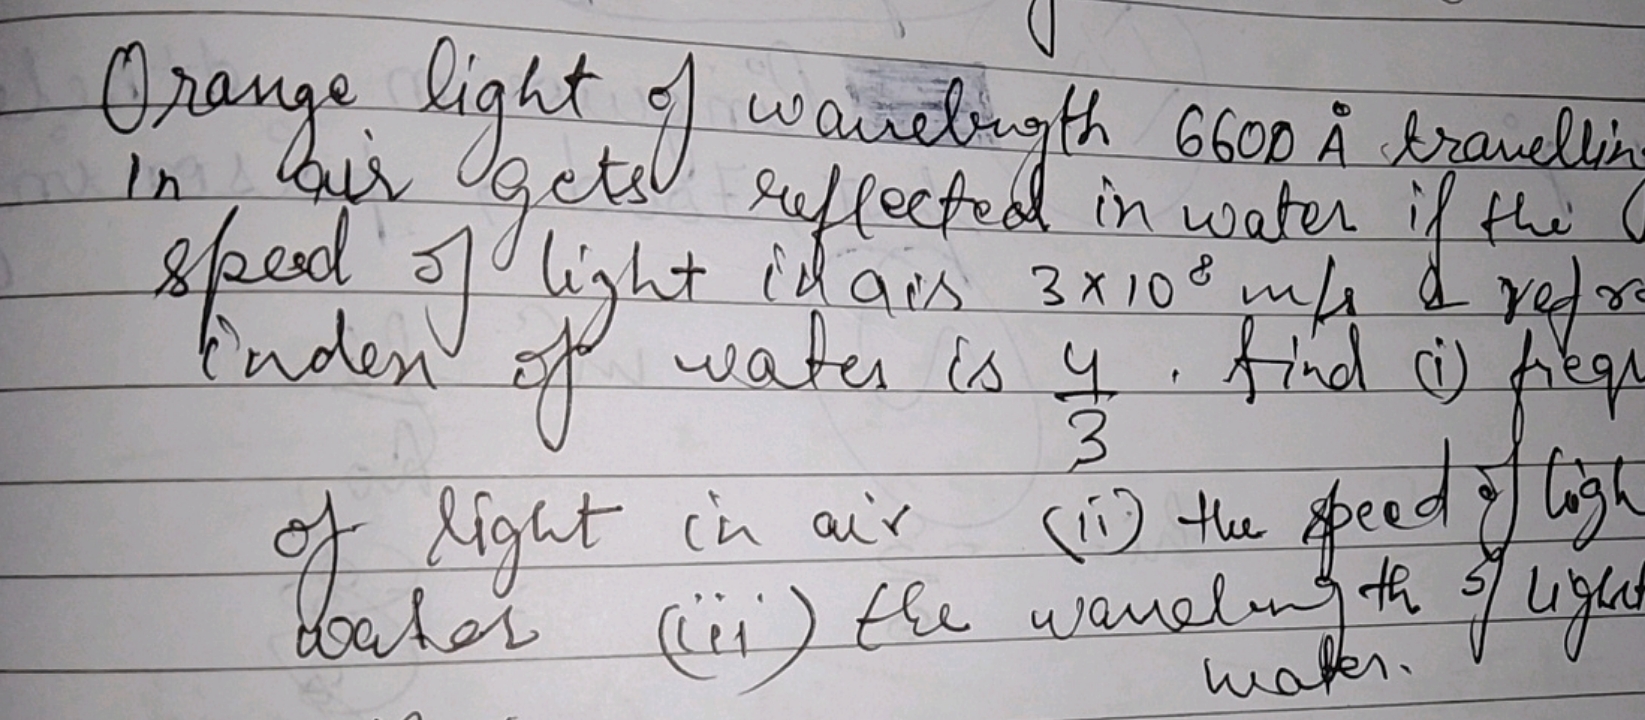 Orange light of wavelength 6600 Å travellin
in air gets reflected in water if the
speed of light in air 3×10⁸ m/s & refra
index of water is 4/3 . find (i) frequ
of light in air (ii) the speed of ligh
water (iii) the wavelength of light
water.